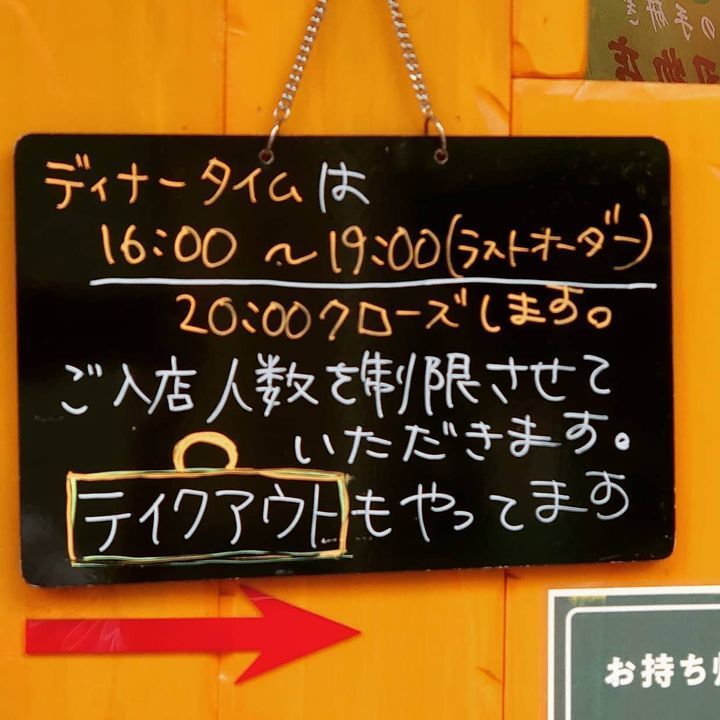 ディナータイムは
16:00 〜19:00(ラストオーダー)
20:00クローズします。
ご入店人数を制限させて
いただきます。
テイクアウトもやってます
お持ち